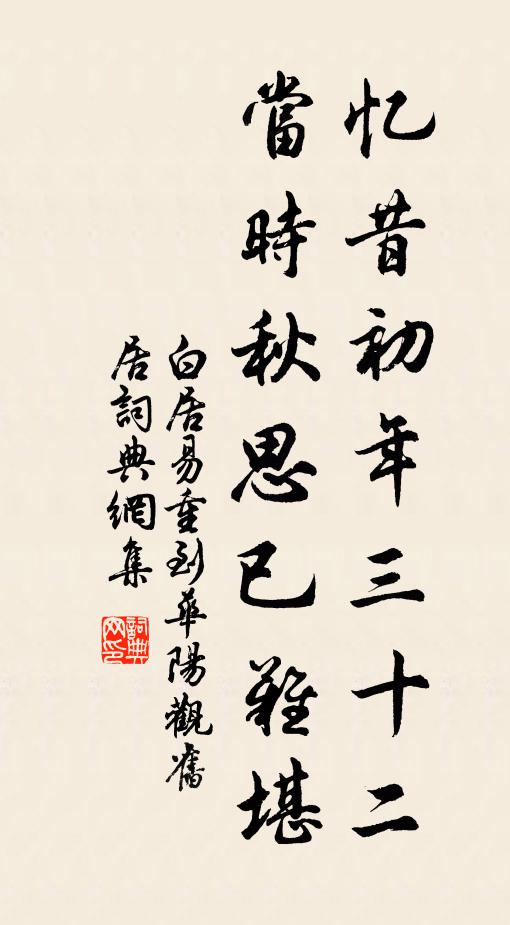 忆昔初年三十二
當時秋思已難堪
白居易重到華陽觀舊
居詞典網集
詞典网印